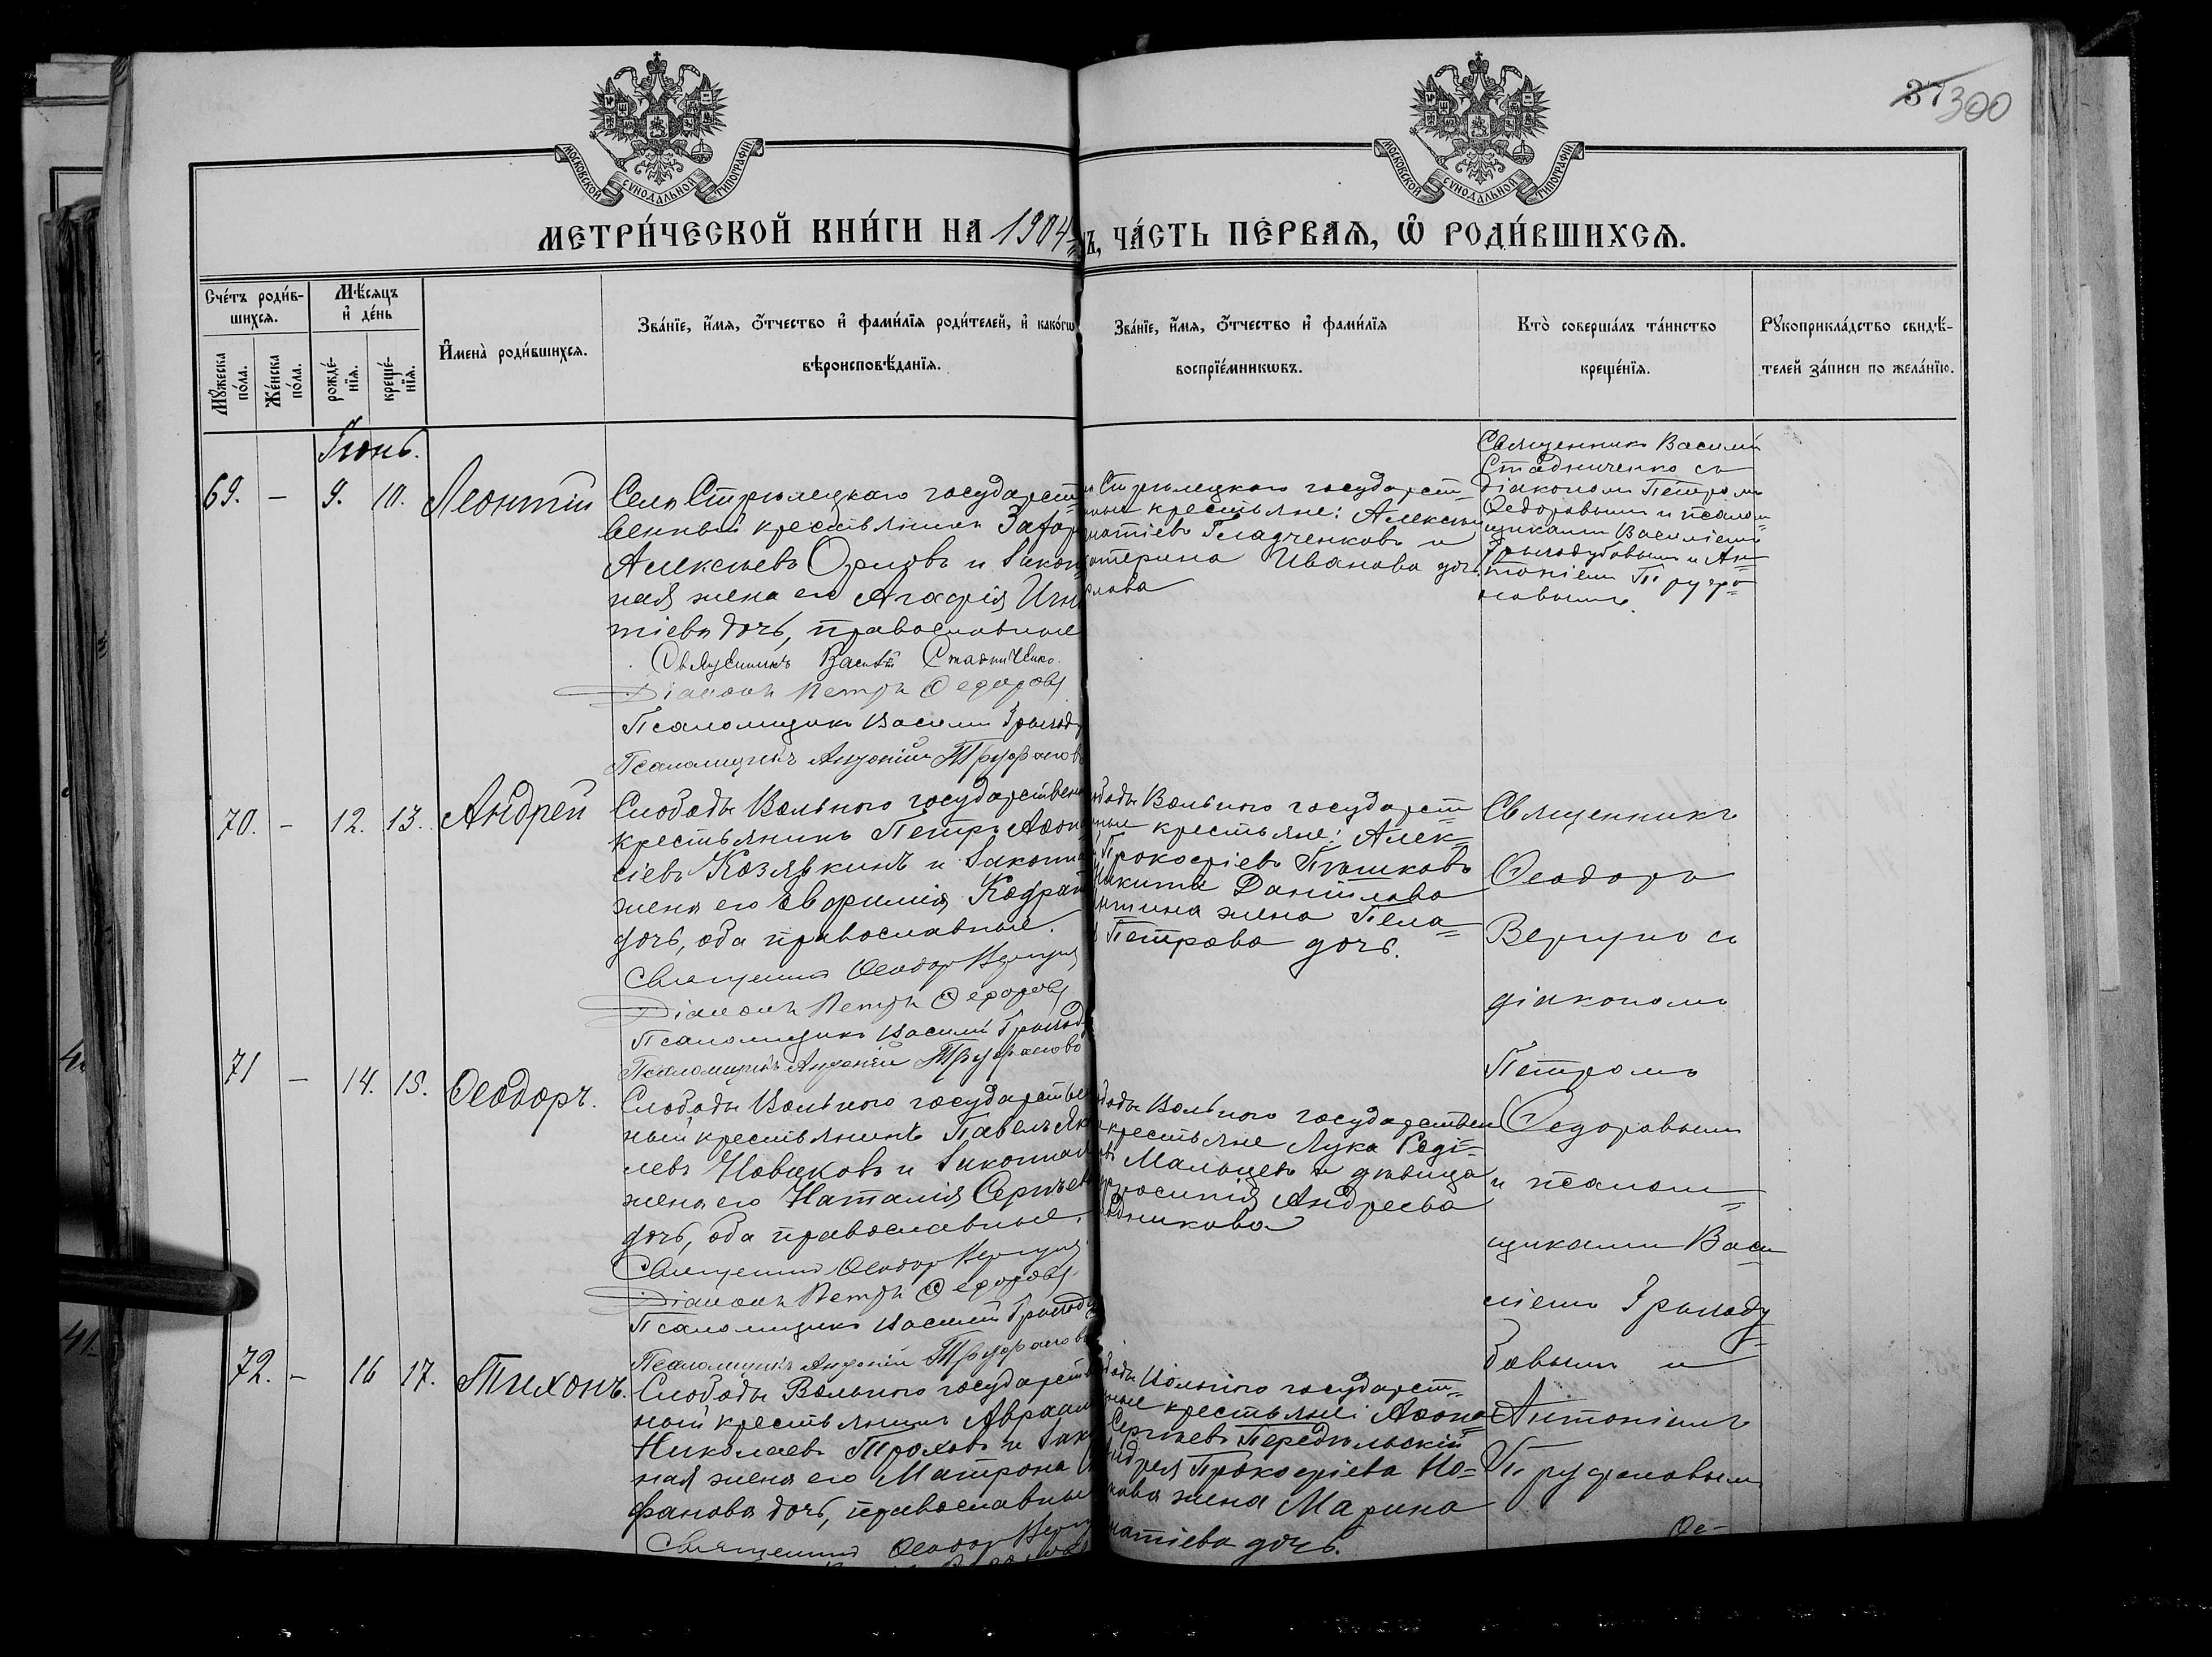 37 300
МОСКОВСКОЙ СѴНОДАЛЬНОЙ ТИПОГРАФІИ
МОСКОВСКОЙ СѴНОДАЛЬНОЙ ТИПОГРАФІИ
МЕТРИ́ЧЕСКОЙ КНИ́ГИ НА 1904 ЧА́СТЬ ПЕ́РВАѦ, Ѡ҆ РОДИ́ВШИХСѦ.
Сче́тъ роди́в-
шихсѧ.
Мꙋ́жеска
по́ла.
Же́нска
по́ла.
Мѣ́сяцъ
и҆ де́нь
рожде́-
нїѧ.
креще́-
нїѧ.
И҆мена̀ роди́вшихсѧ.
Зва́нїе, и҆́мѧ, ѻ҆́тчество и҆ фами́лїѧ роди́телей, и҆ како́гѡ
вѣроисповѣ́данїѧ.
Зва́нїе, и҆́мѧ, ѻ҆́тчество и҆ фами́лїѧ
воспрїе́мникѡвъ.
Кто̀ соверша́лъ та́инство
креще́нїѧ.
Рꙋкоприкла́дство свидѣ́-
телей за́писи по жела́нїю.
Іюнь.
69. – 9. 10. Леонтій
Села Стрѣлецкаго государст=
венный крестьянинъ Захар
Алексѣевъ Орловъ и закон
ная жена его Агафія Игна
тіева дочь, православные
Священникъ Василій Стадниченко.
Діаконъ Петръ Ѳедоровъ
Псаломщикъ Василій
Псаломщикъ Антоній Труфановъ
Стрѣлецкаго государст=
ные крестьяне: Алексѣй
натіевъ Гладченковъ и
катерина Иванова дочь
лова
Священникъ Василій
Стадниченко съ
діакономъ Петромъ
Ѳедоровымъ и псалом=
щиками Василіемъ
и Ан=
тоніемъ Труфа=
новымъ.
70. – 12. 13. Андрей
Слободы Вольнаго государствен
крестьянинъ Петръ Аѳона
сіевъ Козявкинъ и законна
жена его Евфимія Кодрат
дочь, оба православные.
Священникъ Ѳеодоръ
Діаконъ Петръ Ѳедоровъ
Псаломщикъ Василій
Псаломщикъ Антоній Труфановъ
боды Вольнаго государст=
ные крестьяне: Алек=
Прокофіевъ Пѣшковъ
Никиты Данілова
тина жена Пела=
Петрова дочь.
Священникъ
Ѳеодоръ
съ
діакономъ
Петромъ
Ѳедоровымъ
и псалом=
щиками Васи
ліемъ
бовымъ и
Антоніемъ
Труфановымъ
71 – 14. 15. Ѳеодоръ.
Слободы Вольнаго государствен
ный крестьянинъ Павелъ Як
левъ Новиковъ и законная
жена его Наталія Сергѣев
дочь, оба православные.
Священникъ Ѳеодоръ
Діаконъ Петръ Ѳедоровъ
Псаломщикъ Василій
Псаломщикъ Антоній Труфановъ
боды Вольнаго государствен
крестьяне Лука
Мальцевъ и дѣвица
Андреева
дникова
72. – 16 17. Тихонъ.
Слободы Вольнаго государств
ный крестьянинъ Авраам
Николаевъ и зак
ная жена его Матрона
фанова дочь, православные
Священникъ Ѳеодоръ
боды Вольнаго государст=
ные крестьяне: Аѳона
Сергѣевъ Передѣльскій
Андрея Прокофіева Но=
кова жена Марина
натіева дочь.
Ѳе-